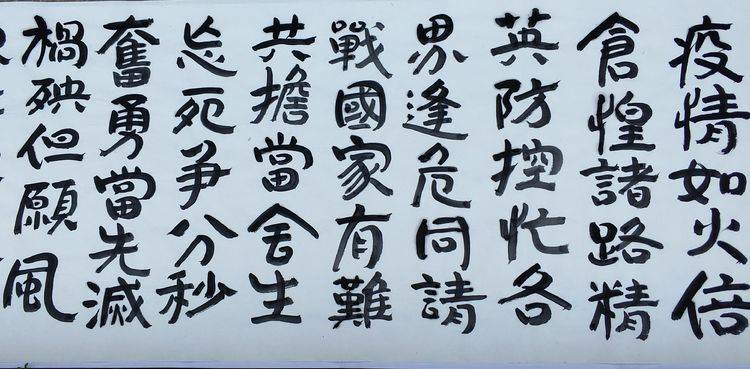 疫情如火倍
倉惶諸路精
英防控忙各
界逢危同請
戰國家有難
共擔當舍生
忘死爭分秒
奮勇當先滅
禍殃但願風